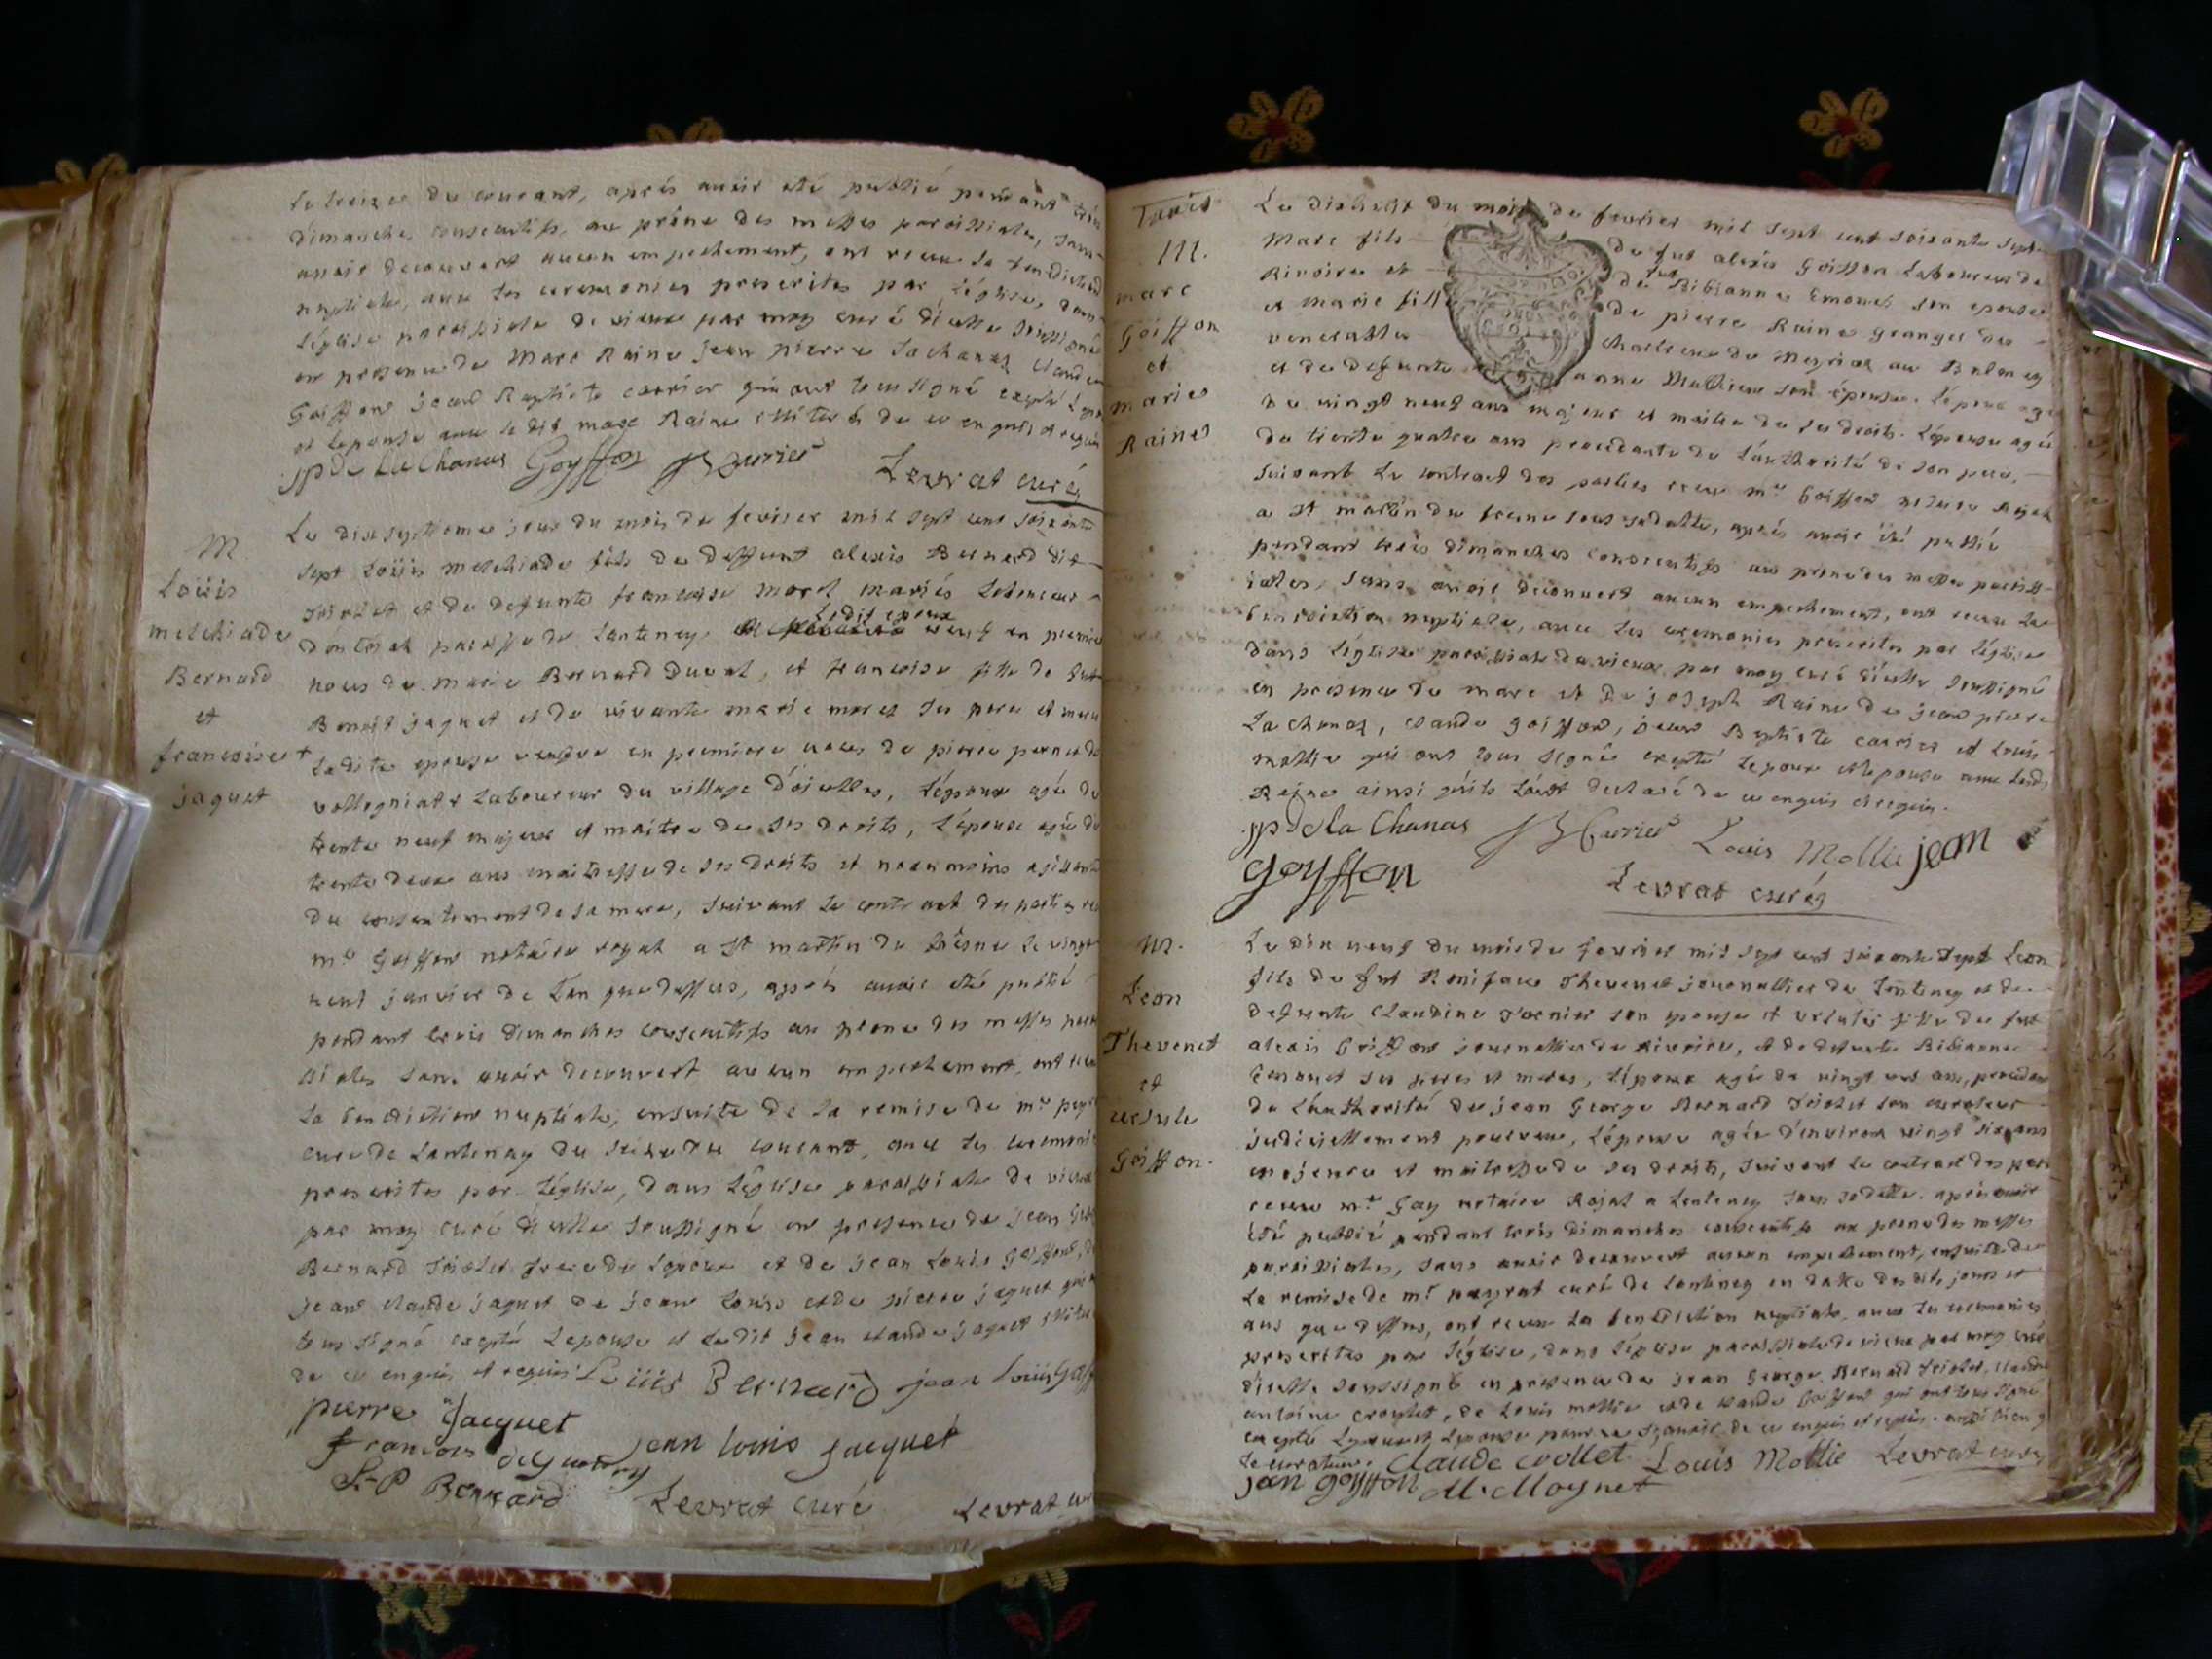 le treize du courant, après avoir été publié pendant trois
dimanches consecutifs, au prône des messes paroissiales, sans
avoir decouvert aucun empechement, ont receu la benediction
nuptiale, avec les ceremonies prescrites par l'église, dans
l'église paroissiale de vieux par moy curé d'icelle soussigné
en presence de Marc Raine jean pierre Lachanas Claude
Goiffon jean Baptiste carrier qui ont tous signé excepté
et l'epouse avec le dit marc Raine illiterés de ce enquis et requis
jp De La Chanas Goyffon JB Curier Levrat curé
M
Loüis
melchiade
Bernard
et
francoise
jaquet
Le dix septieme jour du mois de fevrier mil sept cent soixante
sept Loüis melchiade fils de deffunt alexis Bernard dit
et de defunte francoise morel mariés Laboureur
paroisse de Lanteney, ledit epoux veuf en premiere
noces de marie Bernard Duval, et francoise fille de fut
Benoit jaquet et de vivante marie morel ses pere et mere
Ladite epouse veufve en premiere noces de pierre
Laboureur du village d'ojselles, l'époux agé de
trente neuf majeur et maitre de ses droits, l'épouse agée de
trente deux ans maitresse de ses droits et neanmoins agissante
du consentement de sa mere, suivant le contract des parties receu
me Goiffon notaire royal a St martin du fresne le vingt
neuf janvier de l'an que dessus, après avoir été publié
pendant trois dimanches consecutifs au prone des messes parois
siales sans avoir decouvert aucun empechement, ont receu
la benediction nuptiale, ensuite de la remise de mr peyrat
curé de Lantenay du seize du courant, avec les ceremonies
prescrites par l'église, dans l'église paroissiale de vieux
par moy curé d'icelle soussigné en presence de jean george
Bernard Triolet frere de l'epoux et de jean Louis Goiffon, de
jean claude jaquet de jean Louis et de pierre jaquet qui ont
tous signé excepté l'epouse et ledit jean claude jaquet illiteré
de ce enquis et requis. Loüis Bernard jean loüis Goiffon
pierre Jacquet
francois jean louis jacquet
J-P Bernard Levrat curé Levrat curé
Trois
M.
marc
Goiffon
et
marie
Raine
Le dixhuit du mois de fevrier mil sept cent soixante sept
Marc fils de fut alexis Goiffon Laboureur de
Rivoire et de fut Bibianne Emonet son epouse
et Marie fille de pierre Raine granger des
venerables chartreux de Meyriat au Balmey
et de defunte anne Mathieu son épouse. l'epoux agé
de vingt neuf ans majeur et maitre de ses droits. l'épouse agée
de trente quatre ans procedante de l'authorité de son pere,
suivant le contract des parties receu me Goiffon notaire Royal
a St martin du fresne sous sa datte, après avoir été publié
pendant trois dimanches consecutifs au prone des messes paroiss-
iales, sans avoir decouvert aucun empechement, ont receu la
benediction nuptiale, avec les ceremonies prescrites par l'église
dans l'église paroissiale de vieux par moy curé d'icelle soussigné
en presence de marc et de joseph Raine de jean pierre
Lachanas, claude goiffon, jean Baptiste carrier et Louis
mollie qui ont tous signé excepté l'epoux et l'epouse avec lesdits
Reine ainsi qu'ils l'ont declaré de ce enquis et requis.
jp De la Chanas JB Curier Louis Mollie jean
goyffon Levrat curé
M.
Leon
Thevenet
et
ursule
Goiffon.
Le dix neuf du mois de fevrier mil sept cent soixante sept Leon
fils de fut Boniface Thevenet journallier de Lanteney et de
defunte Claudine Tornier son epouse et ursule fille de fut
alexis Goiffon journallier de Rivoire, et de defunte Bibianne
Emonet ses peres et meres, l'époux agé de vingt ans, procedant
de l'authorité de jean George Bernard Triolet son curateur
judiciellement pourveu, l'épouse agée d'environ vingt six ans
majeure et maitresse de ses droits, suivant le contract des parties
receu me Gay notaire Royal a Lanteney sous sa datte. après avoir
été publié pendant trois dimanches consecutifs au prone des messes
paroissiales, sans avoir decouvert aucun empechement, ensuite de
la remise de mr peyrat curé de Lanteney en datte desdits jour et
ans que dessus, ont receu la benediction nuptiale, avec les ceremonies
prescrites par l'église, dans l'église paroissiale de vieux par moy curé
d'icelle soussigné en presence de jean George Bernard Triolet, claude
antoine croylet, de Louis mollie et de claude Goiffon qui ont tous signé
excepté l'epoux et l'epouse pour ne sçavoir de ce enquis et requis.
le curateur. Claude collet Louis Mollie Levrat curé
jan goyffon M. Moynet